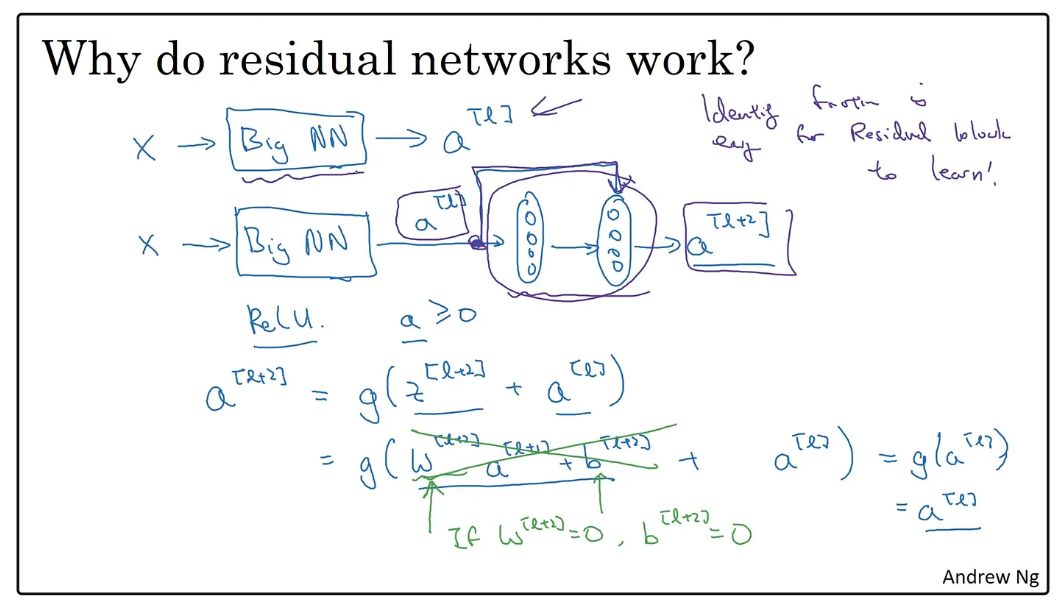 Why do residual networks work?
X → Big NN → a^[l]
Identity function is
easy for Residual block
to learn!
X → Big NN a^[l] → a^[l+2]
ReLU. a ≥ 0
a^[l+2] = g(z^[l+2] + a^[l])
= g(W^[l+2] a^[l+1] + b^[l+2] + a^[l]) = g(a^[l])
= a^[l]
If W^[l+2] = 0, b^[l+2] = 0
Andrew Ng